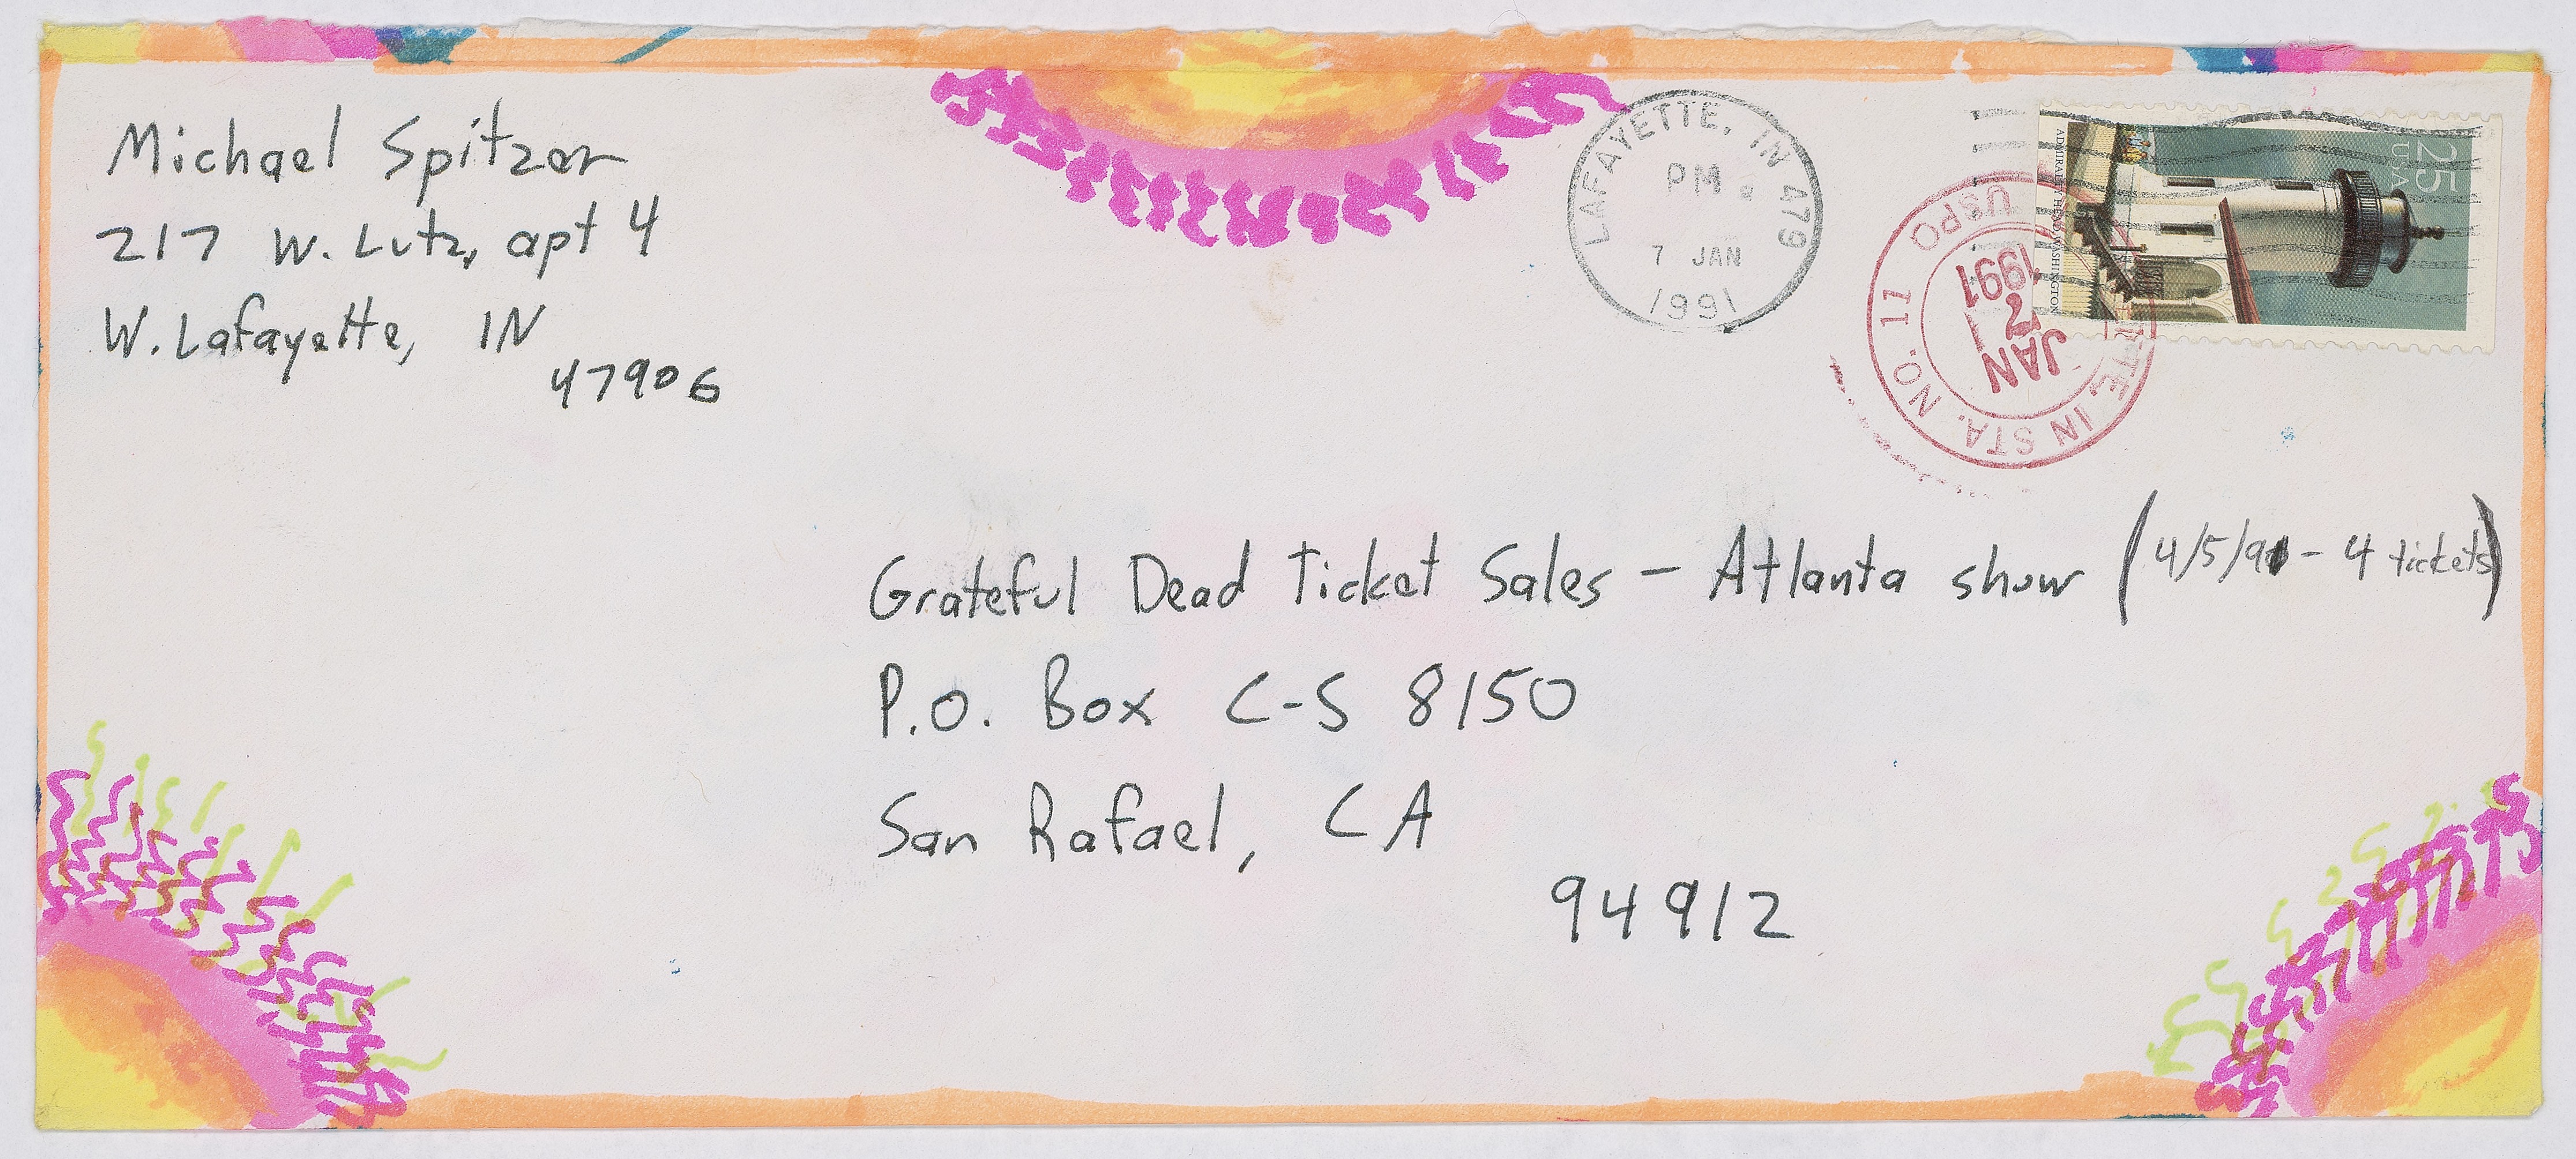 Michael Spitzer
217 W. Lutz, apt 4
W. Lafayette, IN
47906
LAFAYETTE, IN 479
PM
7 JAN
1991
USPO
JAN
7
1991
TTE, IN STA. NO. 11
25
USA
ADMIRALTY HEAD, WASHINGTON
Grateful Dead Ticket Sales - Atlanta show (4/5/91 - 4 tickets)
P.O. Box C-S 8150
San Rafael, CA
94912